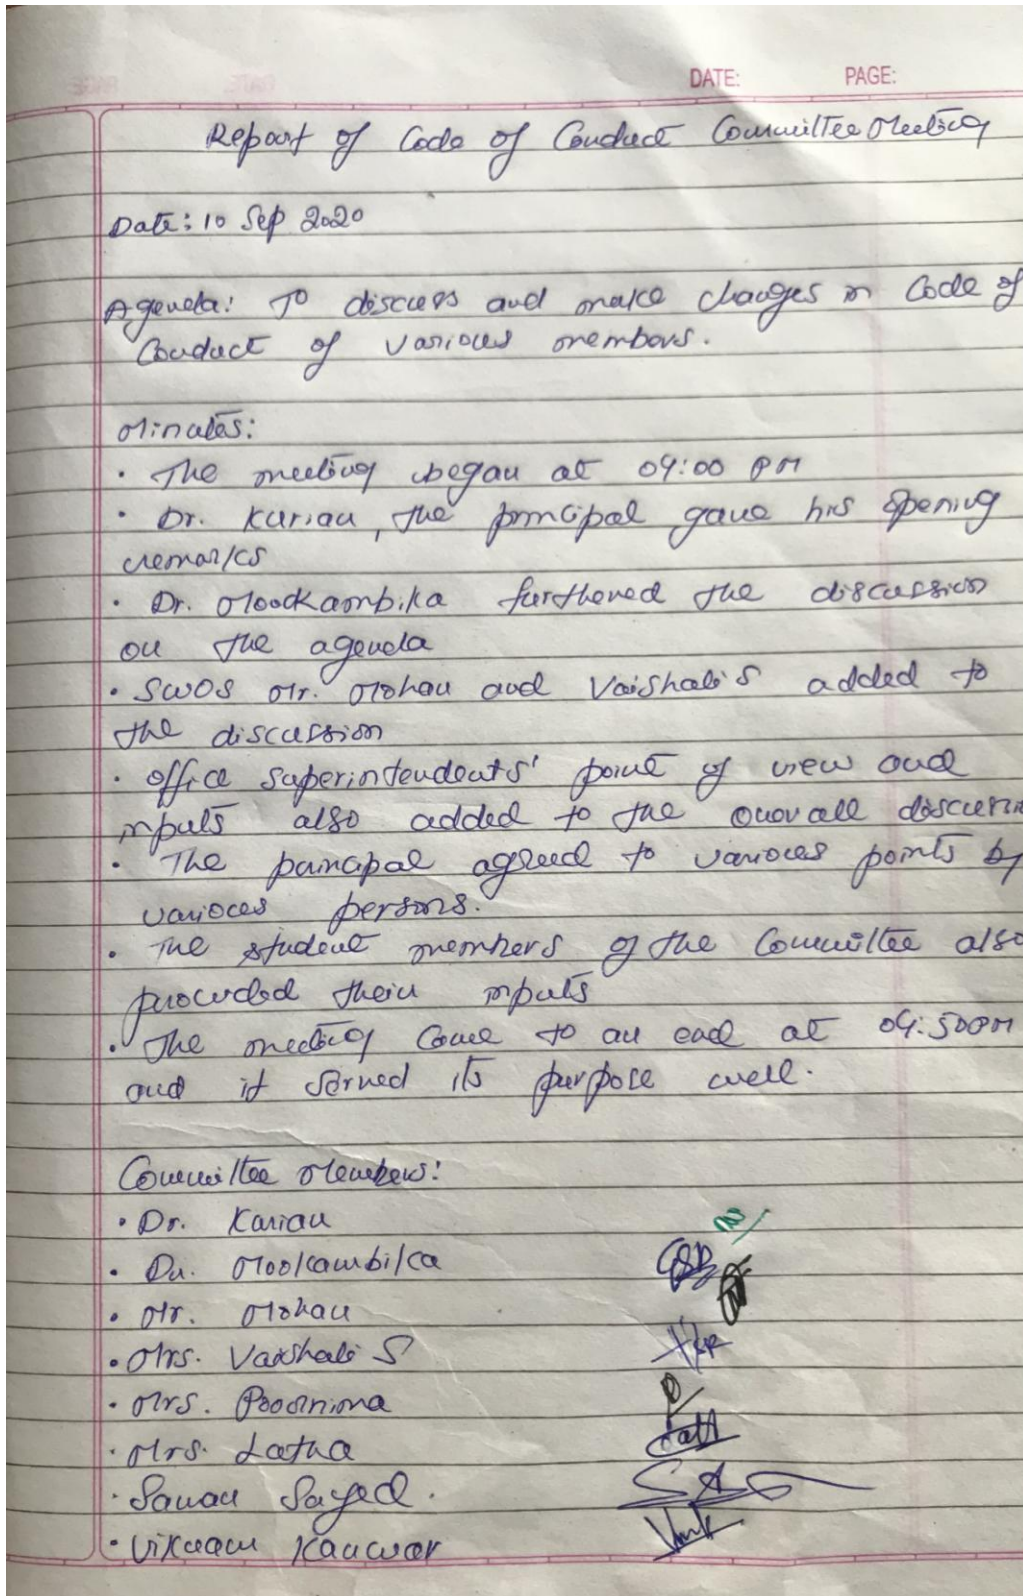 DATE: PAGE:
Report of Code of Conduct Committee Meeting
Date: 10 Sep 2020
Agenda: To discuss and make changes in Code of
Conduct of various members.
Minutes:
• The meeting began at 04:00 PM
• Dr. Kurian, the principal gave his opening
remarks
• Dr. Mookambika furthered the discussion
on the agenda
• SWOS Mr. Mohan and Vaishali S added to
the discussion
• office superintendents' point of view and
inputs also added to the overall discussion
• The principal agreed to various points by
various persons.
• The student members of the Committee also
provided their inputs
• The meeting came to an end at 04:50PM
and it served its purpose well.
Committee Members:
• Dr. Kurian
• Dr. Mookambika
• Mr. Mohan
• Mrs. Vaishali S
• Mrs. Poornima
• Mrs. Latha
• Sanau Sayed.
• Vikram Kanwar